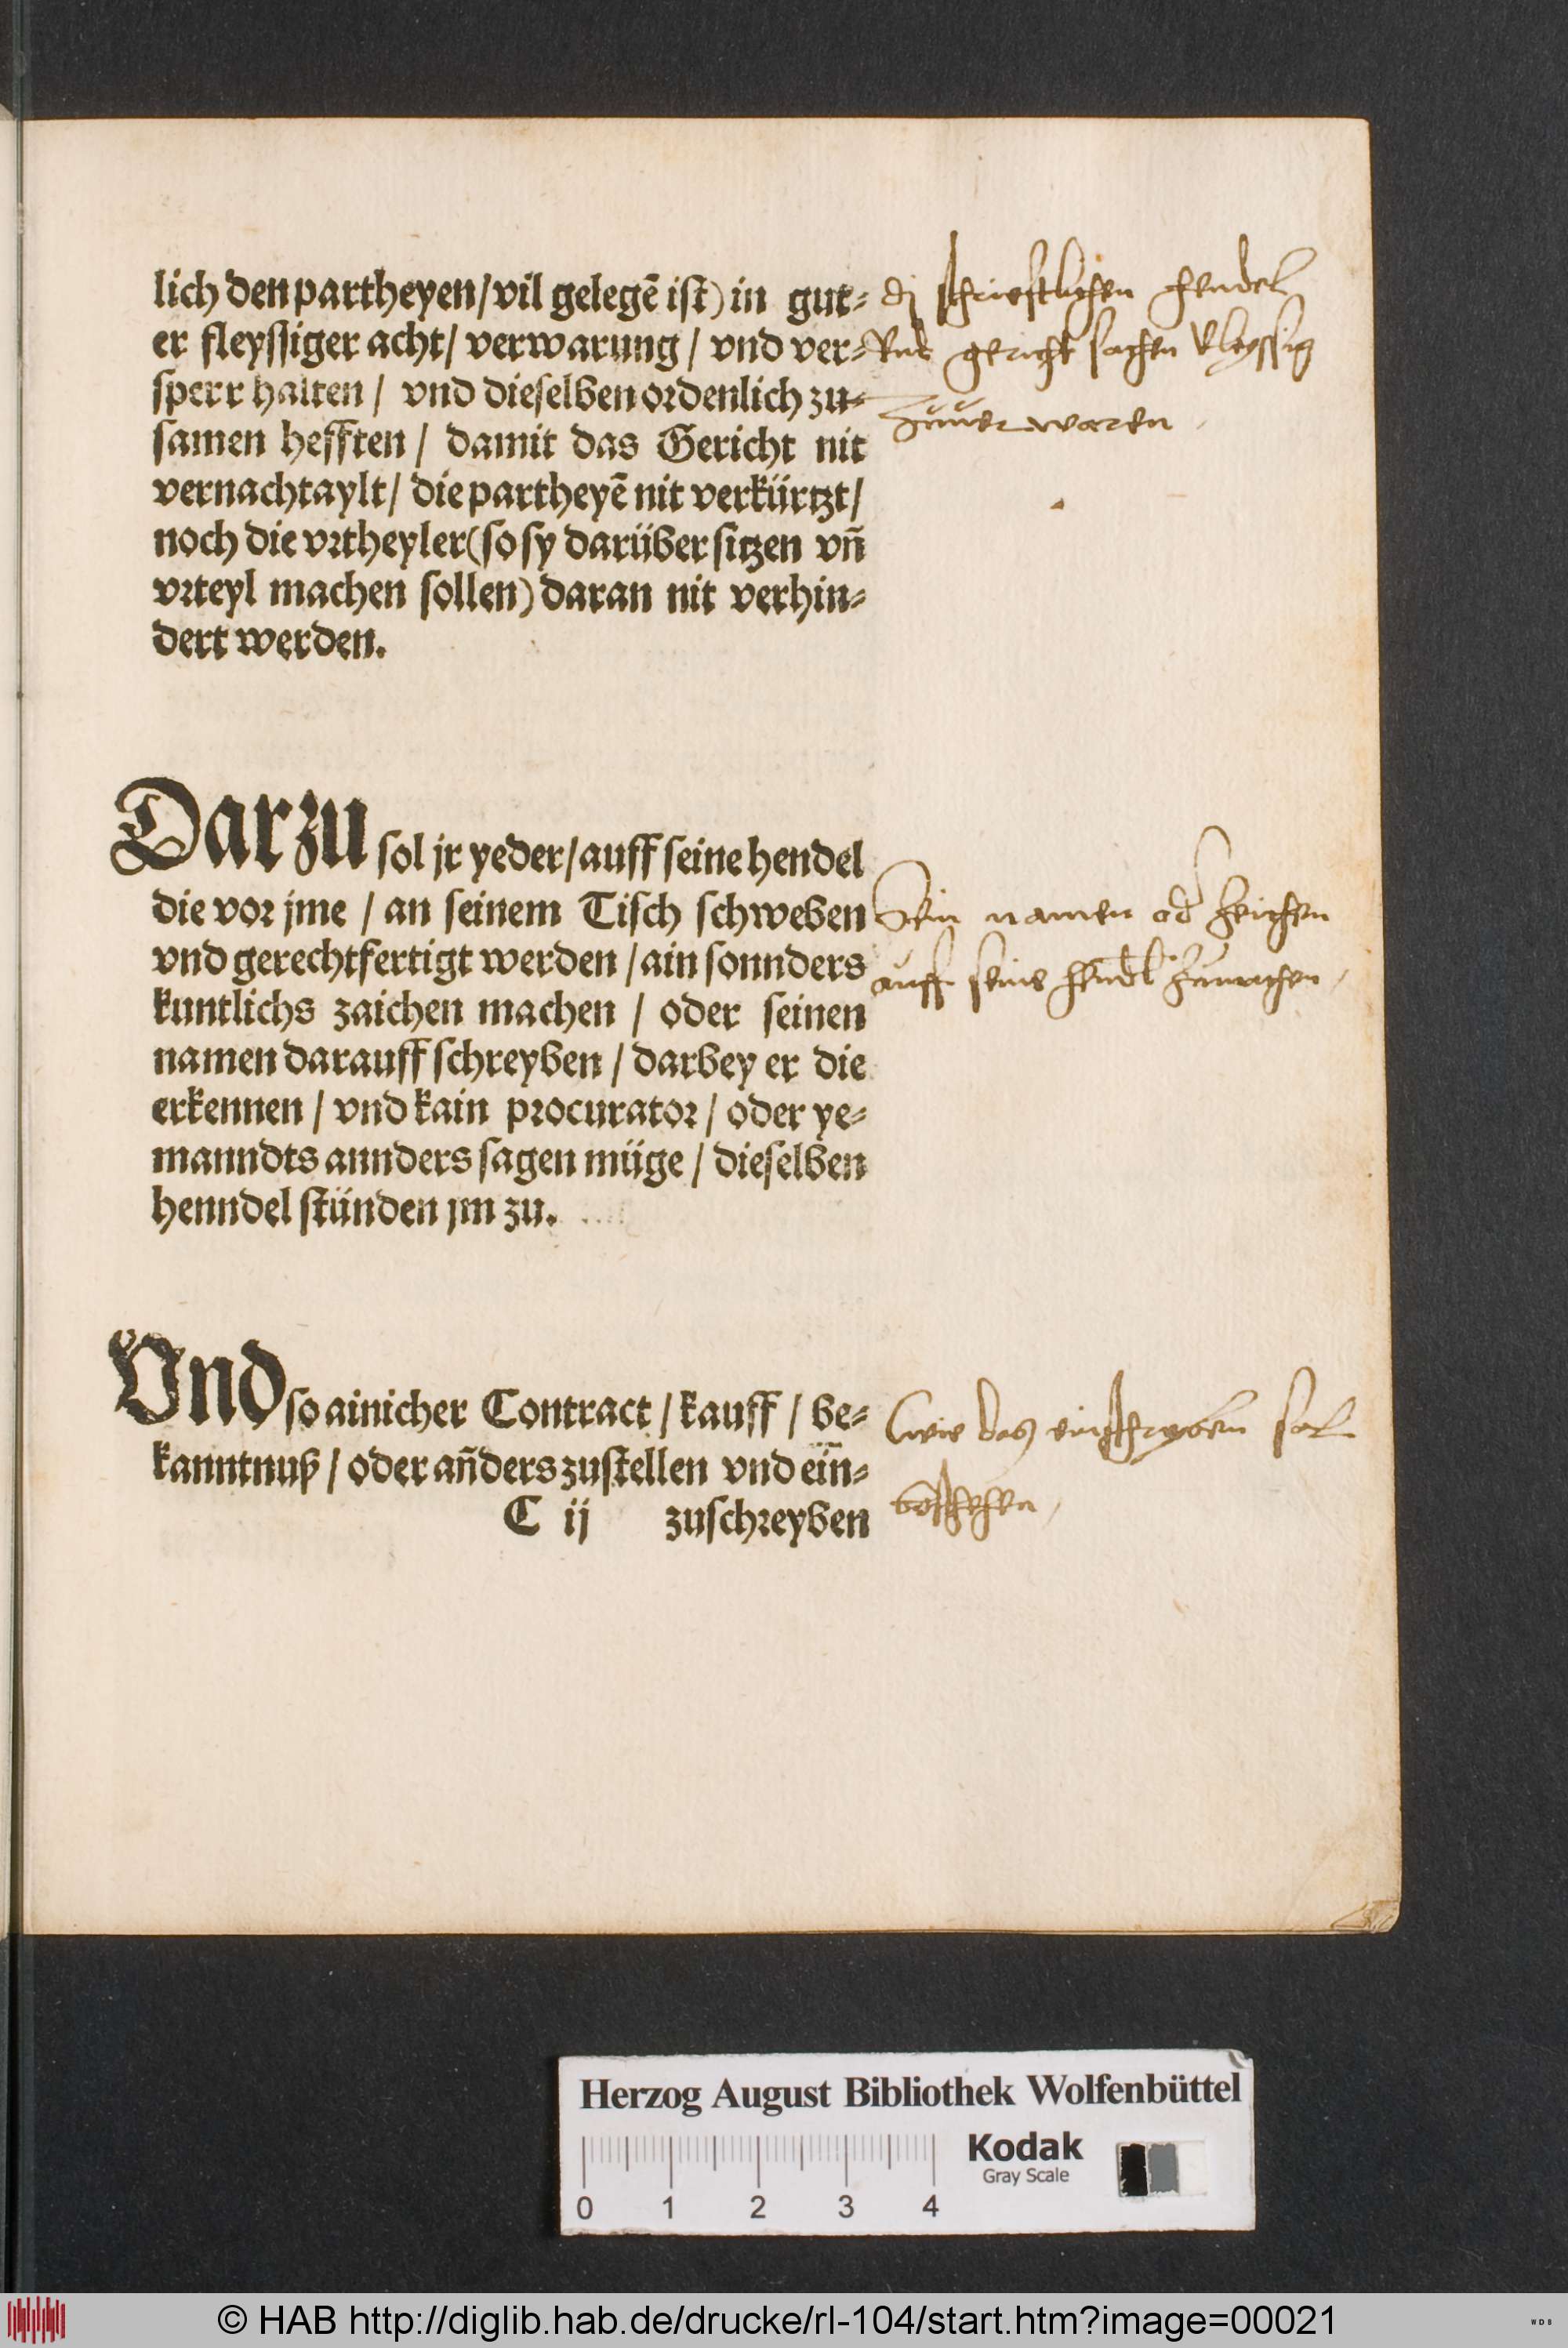 lich den partheyen/vil gelegẽ ist) in gut-
er fleyssiger acht/ verwarung / vnd ver-
sperr halten / vnd dieselben ordenlich zu-
samen hefften / damit das Gericht nit
vernachtaylt/ die partheyẽ nit verkürtzt/
noch die vrtheyler(so sy darüber sitzen vñ
vrteyl machen sollen) daran nit verhin-
dert werden.
di schriefftlichen hendel
vnd gericht sachen vleyssig
zuuerwaren
Darzu sol jr yeder/auff seine hendel
die vor jme / an seinem Tisch schweben
vnd gerechtfertigt werden / ain sonnders
kuntlichs zaichen machen / oder seinen
namen darauff schreyben / darbey er die
erkennen / vnd kain procurator / oder ye-
manndts annders sagen müge / dieselben
henndel stünden jm zu.
Sein namen od zeichen
auff seine hendl zumachen
Vnd so ainicher Contract / kauff / be-
kanntnuß / oder añders zustellen vnd ein-
C ij zuschreyben
wie das einschreyben sol
Herzog August Bibliothek Wolfenbüttel
Kodak
Gray Scale
0 1 2 3 4
© HAB http://diglib.hab.de/drucke/rl-104/start.htm?image=00021